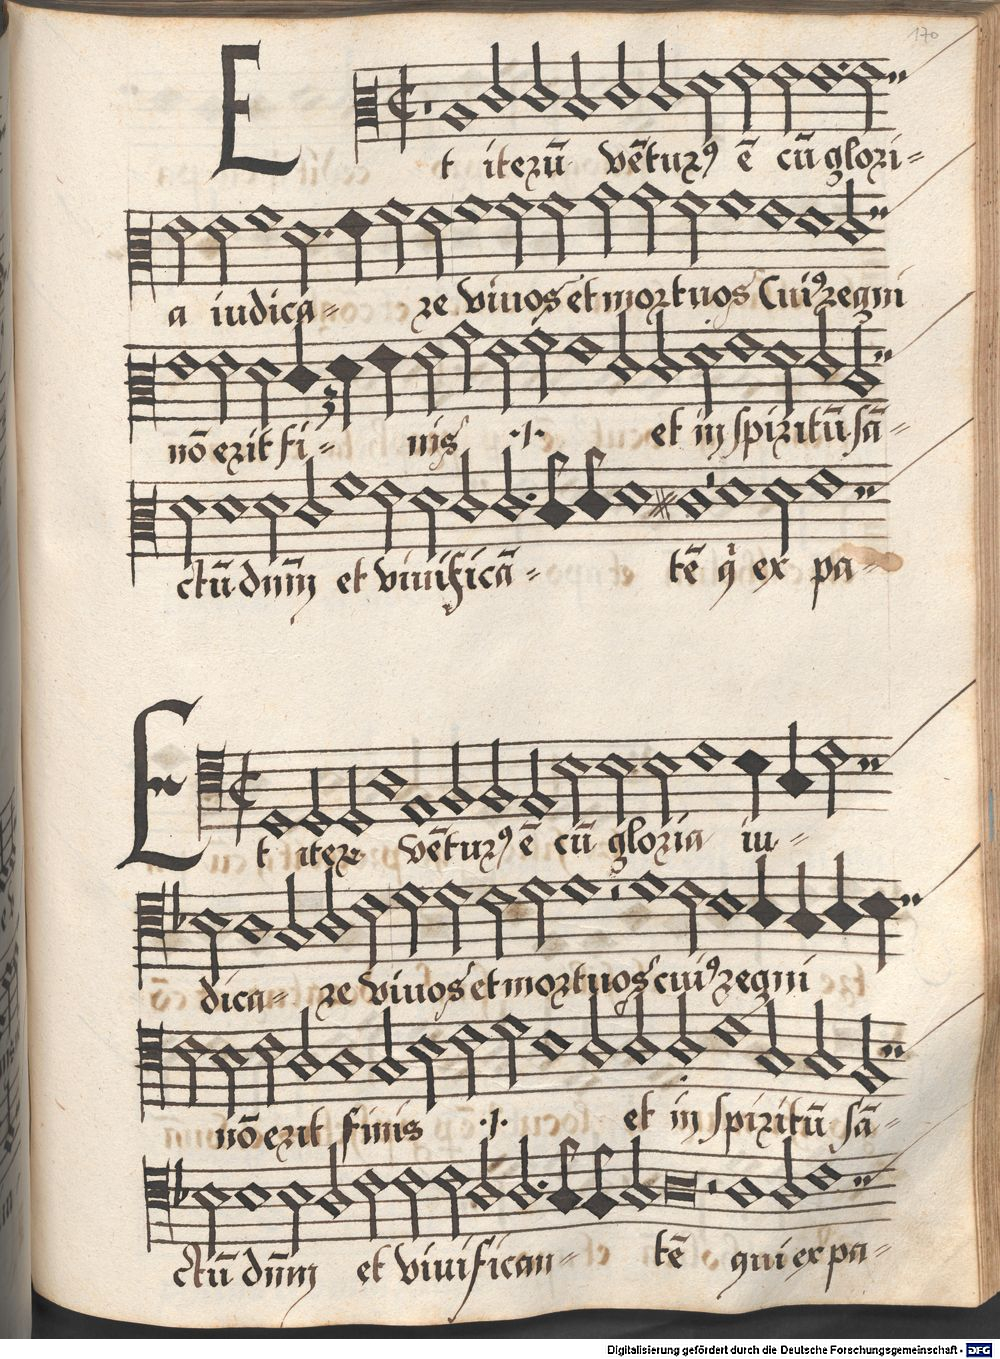 170
Et iterū vētur⁹ ē cū glori=
a iudica= re vivos et mortuos Cui⁹ regni
nō erit fi= nis ·1· et in spiritū sā=
ctū dnm et vivificā= tē q̇ ex pa=
Et iterr vētur⁹ ē cū gloria iu=
dica= re vivos et mortuos cui⁹ regni
nō erit finis ·1· et in spiritū sā=
ctū dnm et vivifican= tē qui ex pa=
Digitalisierung gefördert durch die Deutsche Forschungsgemeinschaft - DFG